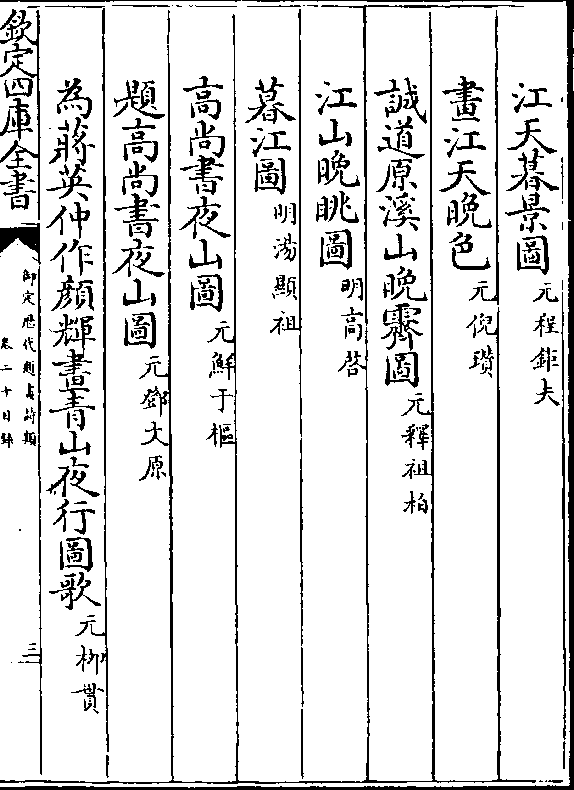 江天暮景圖元程鉅夫
畫江天晚色元倪瓚
誠道原溪山晚霽圖元釋祖柏
江山晚眺圖明高啓
暮江圖明湯顯祖
高尚書夜山圖元鮮于樞
題高尚書夜山圖元鄧文原
為蔣英仲作顔輝畫青山夜行圖歌元柳貫
欽定四庫全書
御定歴代題畫詩類
卷二十目録
三